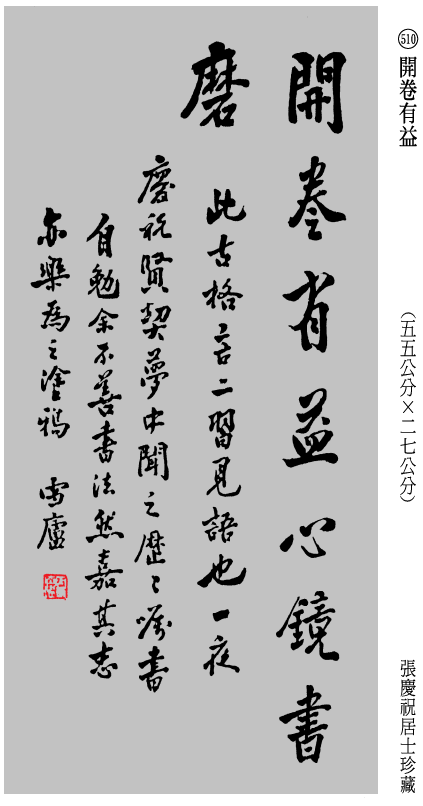 510 開卷有益 （五五公分×二七公分） 張慶祝居士珍藏
開卷有益心鏡書
磨
此古格言二習見語也一夜
慶祝賢契夢中聞之歷〻囑書
自勉余不善書法然嘉其志
亦樂為之塗鴉 雪廬